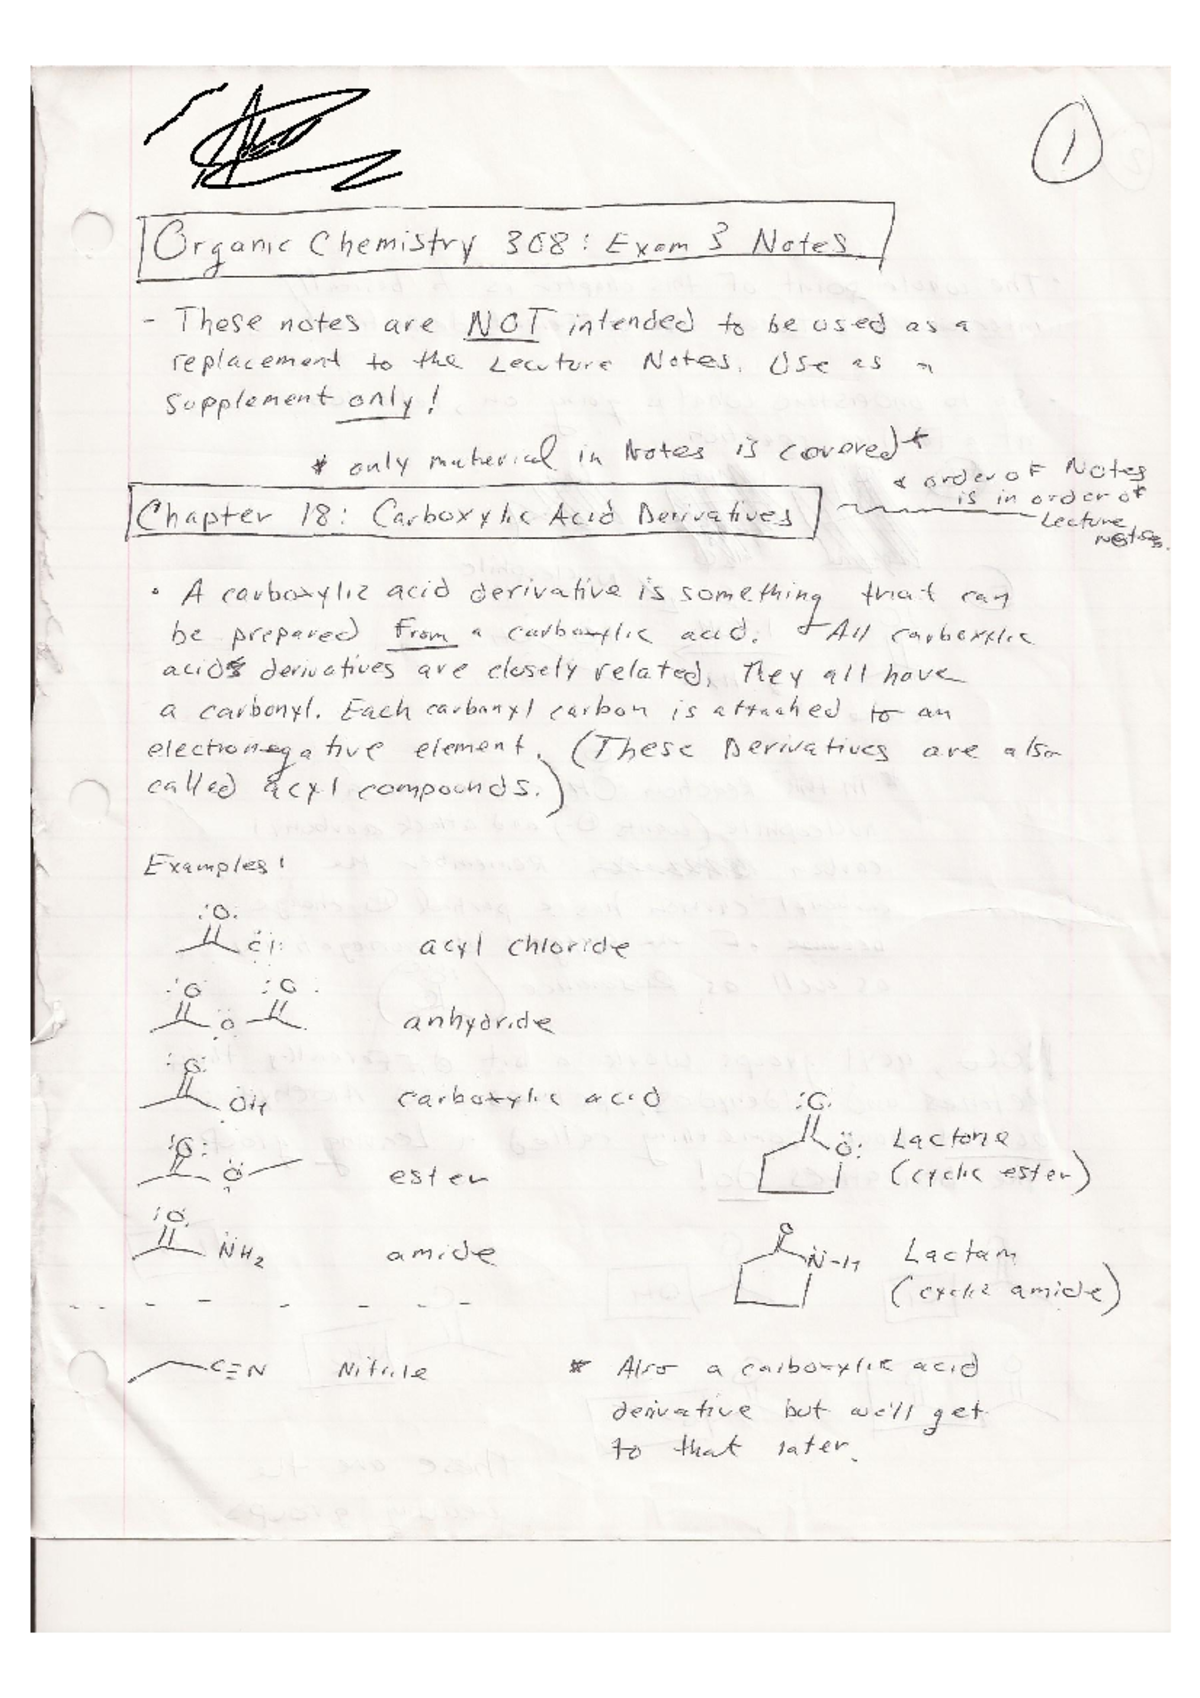 1
Organic Chemistry 308: Exam 3 Notes
- These notes are NOT intended to be used as a
replacement to the Lecuture Notes. Use as a
supplement only!
* only material in Notes is covered *
* order of Notes
is in order of
Lecture
Notes.
Chapter 18: Carboxylic Acid Derivatives
• A carboxylic acid derivative is something that can
be prepared From a carboxylic acid. All carboxylic
acids derivatives are closely related. They all have
a carbonyl. Each carbonyl carbon is attached to an
electronegative element. (These Derivatives are also
called acyl compounds.)
Examples:
:O:
Cl: acyl chloride
:O: :O:
O anhydride
:O:
OH carboxylic acid
:O:
O ester
:O:
NH2 amide
:O:
O: Lactone
(cyclic ester)
O
N-H Lactam
(cyclic amide)
C≡N Nitrile
* Also a carboxylic acid
derivative but we'll get
to that later.